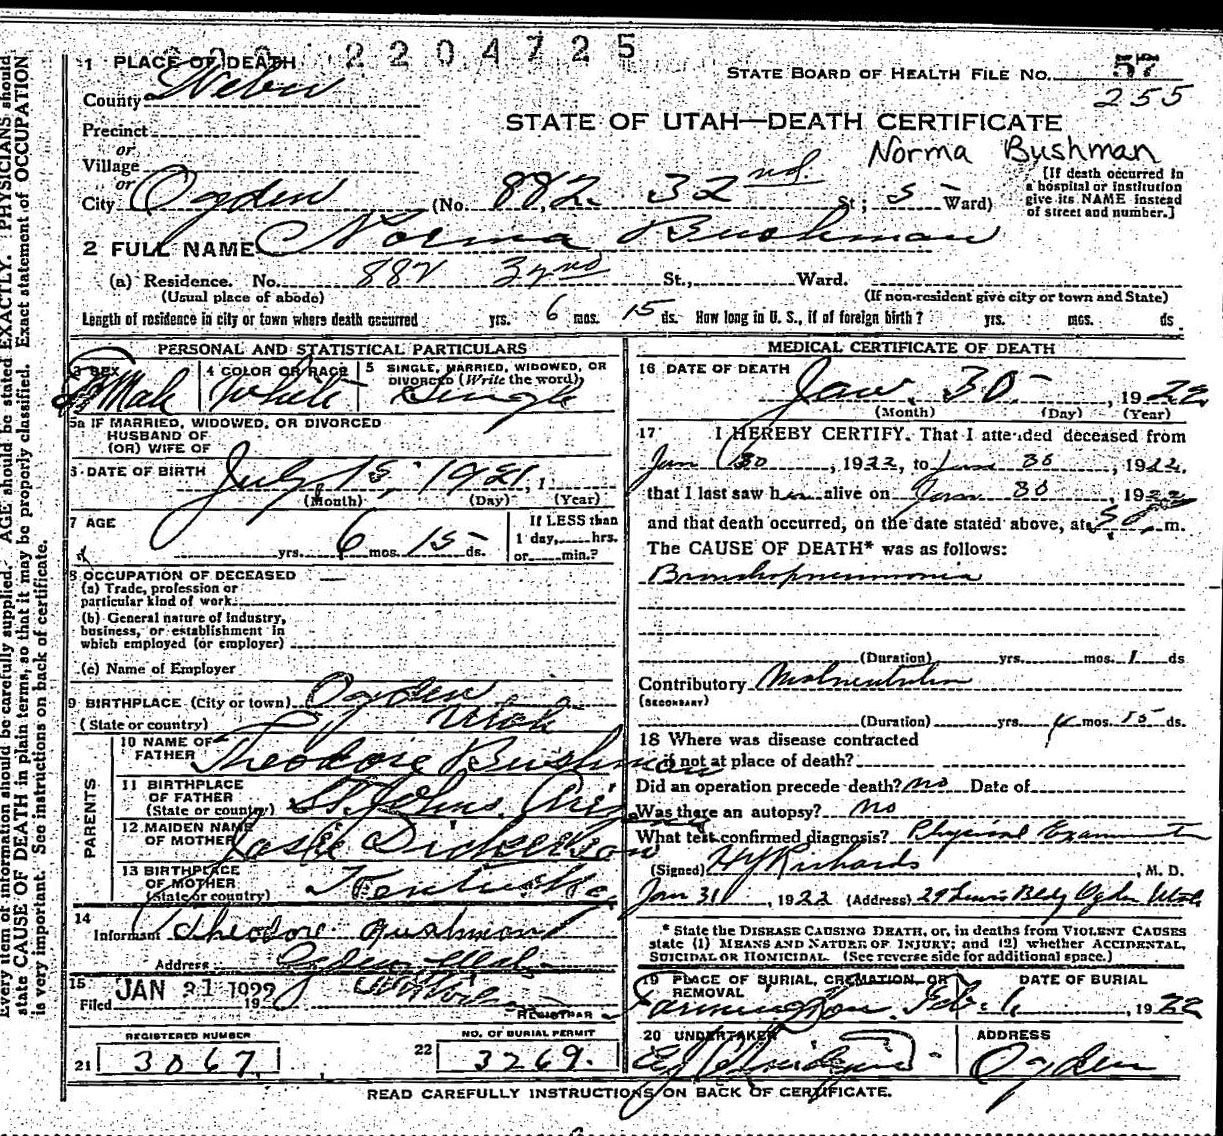 2204725
1 PLACE OF DEATH
STATE BOARD OF HEALTH FILE No. 57
County Weber
255
STATE OF UTAH—DEATH CERTIFICATE
Precinct
or
Norma Bushman
Village
or
City Ogden (No. 882. 32nd St; 5 Ward)
[If death occurred in a hospital or institution give its NAME instead of street and number.]
2 FULL NAME Norma Bushman
(a) Residence. No. 882 32nd St., Ward.
(Usual place of abode) (If non-resident give city or town and State)
Length of residence in city or town where death occurred yrs. 6 mos. 15 ds. How long in U. S., if of foreign birth? yrs. mos. ds
PERSONAL AND STATISTICAL PARTICULARS
3 SEX
4 COLOR OR RACE White
5 SINGLE, MARRIED, WIDOWED, OR DIVORCED (Write the word) Single
5a IF MARRIED, WIDOWED, OR DIVORCED
HUSBAND OF
(OR) WIFE OF
6 DATE OF BIRTH July 15, 1921, 1
(Month) (Day) (Year)
7 AGE
yrs. 6 mos. 15 ds.
If LESS than
1 day, hrs.
or min.?
8 OCCUPATION OF DECEASED
(a) Trade, profession or
particular kind of work
(b) General nature of industry,
business, or establishment in
which employed (or employer)
(c) Name of Employer
9 BIRTHPLACE (City or town) Ogden
(State or country) Utah
PARENTS
10 NAME OF FATHER Theodore Bushman
11 BIRTHPLACE OF FATHER (State or country) St. Johns, Ariz
12 MAIDEN NAME OF MOTHER Dickerson
13 BIRTHPLACE OF MOTHER (State or country) Kentucky
14
Informant Theodore Bushman
Address Ogden Utah
15 Filed JAN 31 1922 192
REGISTRAR
REGISTERED NUMBER
21 3067.
NO. OF BURIAL PERMIT
22 3269.
MEDICAL CERTIFICATE OF DEATH
16 DATE OF DEATH
Jan. 30, 1922
(Month) (Day) (Year)
17 I HEREBY CERTIFY. That I attended deceased from
Jan 30, 1922, to Jan 30, 1922.
that I last saw h alive on Jan 30, 1922
and that death occurred, on the date stated above, at m.
The CAUSE OF DEATH* was as follows:
Bronchopneumonia
(Duration) yrs. mos. 1 ds
Contributory Malnutrition
(SECONDARY)
(Duration) yrs. 4 mos. 15 ds.
18 Where was disease contracted
if not at place of death?
Did an operation precede death? no Date of
Was there an autopsy? no
What test confirmed diagnosis? Physical Examination
(Signed) Richards, M. D.
Jan 31, 1922 (Address) 29 Lewis Bldg Ogden Utah
* State the DISEASE CAUSING DEATH, or, in deaths from VIOLENT CAUSES
state (1) MEANS AND NATURE OF INJURY; and (2) whether ACCIDENTAL,
SUICIDAL OR HOMICIDAL. (See reverse side for additional space.)
19 PLACE OF BURIAL, CREMATION, OR REMOVAL
DATE OF BURIAL
Farmington. Feb. 1, 1922
20 UNDERTAKER
ADDRESS
Ogden
READ CAREFULLY INSTRUCTIONS ON BACK OF CERTIFICATE.
Every item of information should be carefully supplied. AGE should be stated EXACTLY. PHYSICIANS should
state CAUSE OF DEATH in plain terms, so that it may be properly classified. Exact statement of OCCUPATION
is very important. See instructions on back of certificate.